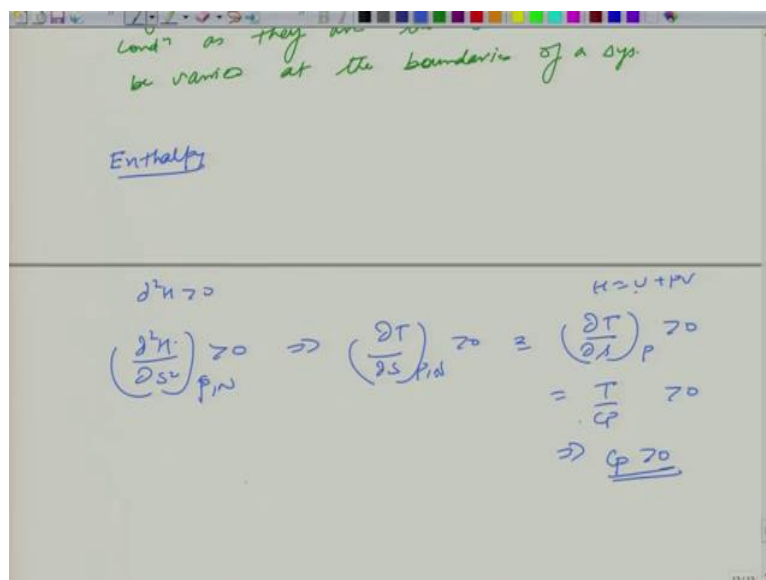 condⁿ as they are
be varied at the boundaries of a sys.
Enthalpy
d²H >0
H = U + PV
(∂²H/∂S²)P,N >0 ⇒ (∂T/∂S)P,N >0 ≡ (∂T/∂s)P >0
= T/CP >0
⇒ CP >0